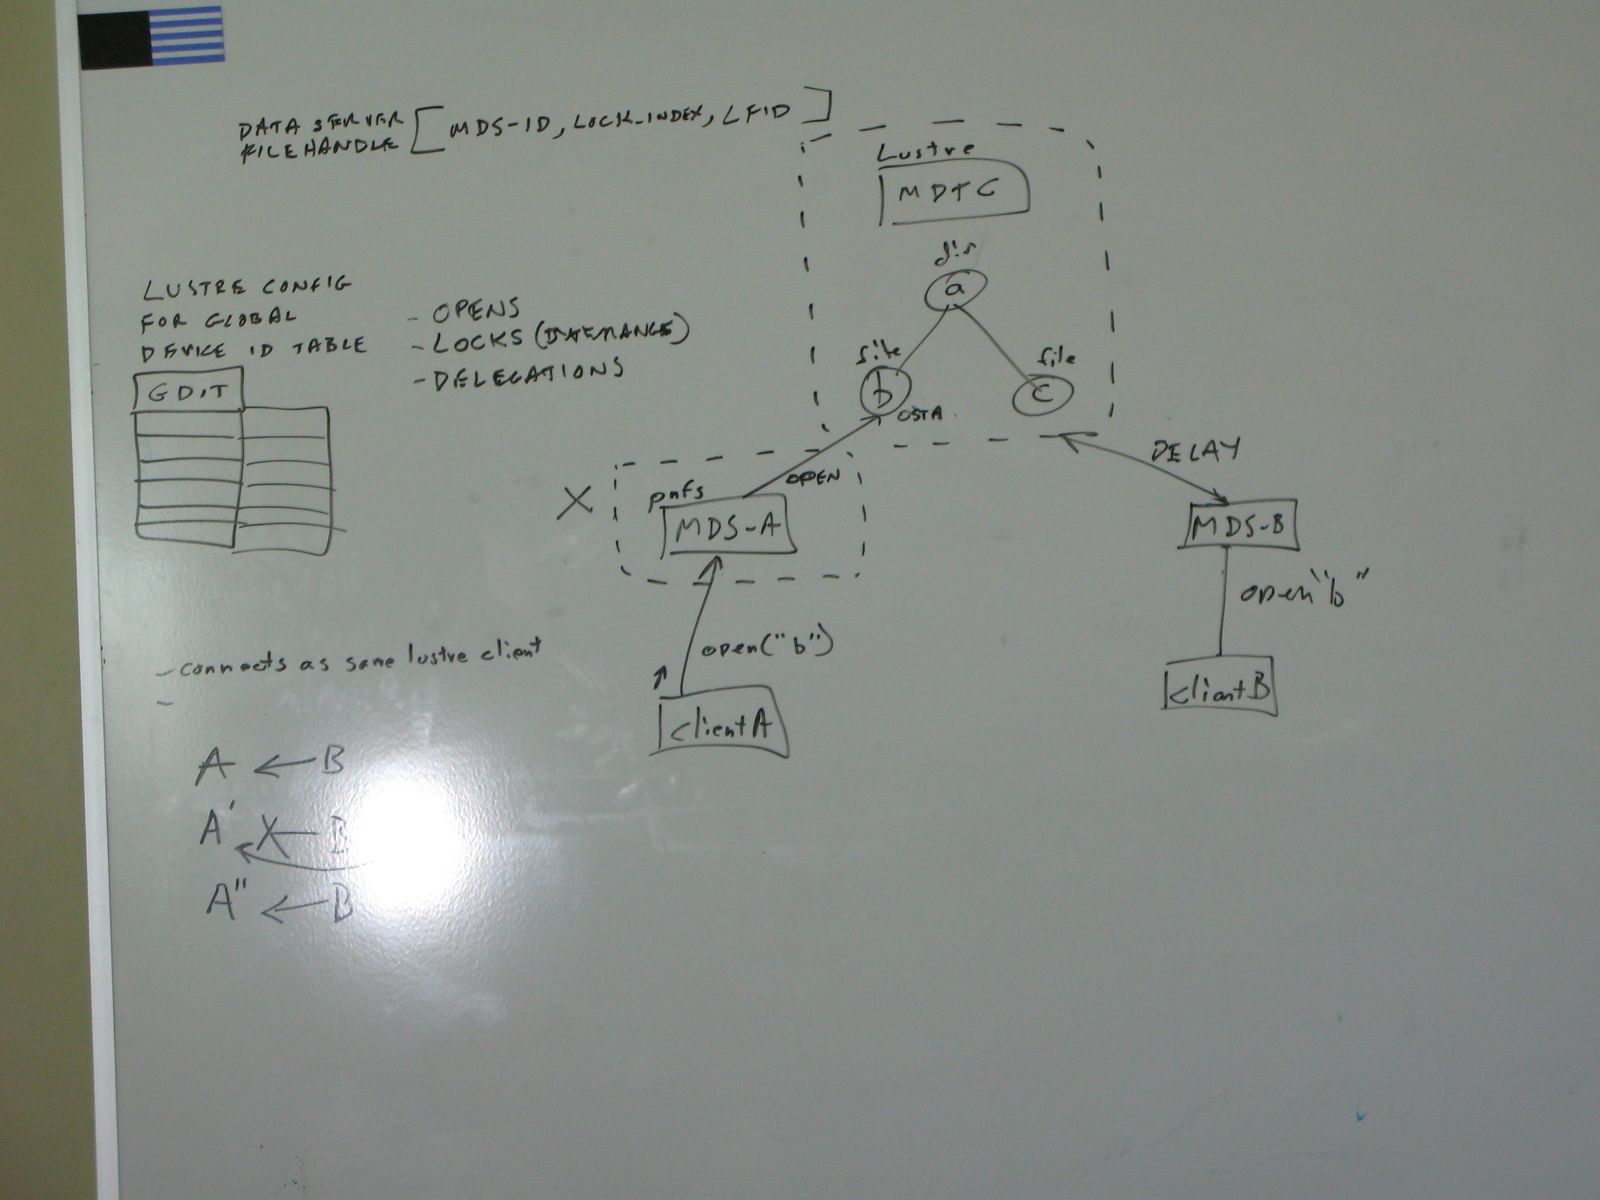 DATA SERVER
FILEHANDLE
[MDS-ID, LOCK-INDEX, LFID]
Lustre
MDTC
dir
a
file
b
OSTA
file
c
LUSTRE CONFIG
FOR GLOBAL
DEVICE ID TABLE
GDIT
- OPENS
- LOCKS (BYTERANGE)
- DELEGATIONS
X
pnfs
MDS-A
OPEN
DELAY
MDS-B
open("b")
open "b"
clientA
clientB
- connects as same lustre client
-
A ← B
A' X B
A" ← B